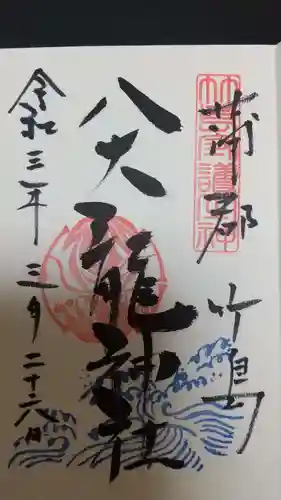 蒲郡 竹島
八大龍神社
令和三年三月二十六日